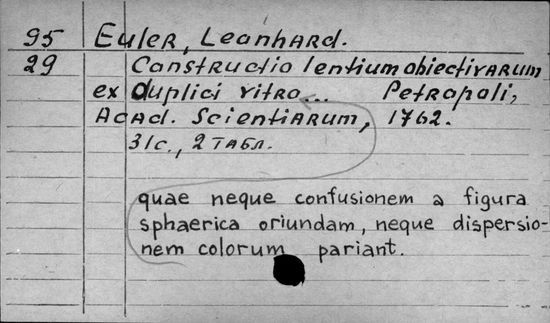 95 Euler, Leonhard.
29 Constructio lentium obiectivarum
ex duplici vitro... Petropoli,
Acad. Scientiarum, 1762.
31с., 2 табл.
quae neque confusionem a figura
sphaerica oriundam, neque dispersio-
nem colorum pariant.